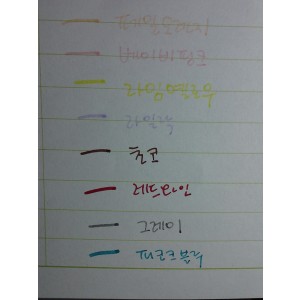 페일오렌지
베이비핑크
라임옐로우
라일락
초코
레드와인
그레이
피콕블루